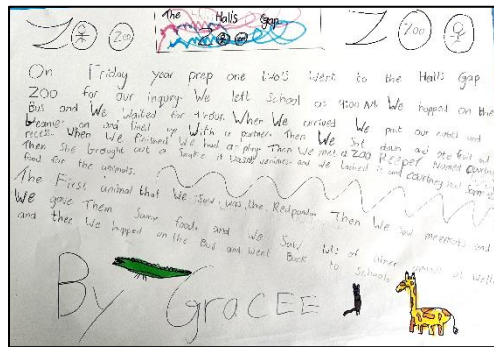 The Halls Gap
ZOO
ZOO
On Friday year prep one two's went to the Halls Gap
ZOO for our inquiry. We left school at 9:00 AM We hopped on the
Bus and We waited for 1 hour. When We arrived We put our
on and lined up With a partner. Then We Sat down and ate fruit and
recess. When We finished We had a play Then We met a ZOO Keeper Named Courtney
Then She brought out a Snake it wasnt venimes and we touched it and courtney had Some
food for the animals.
The First animal that We Saw was the Redpanda. Then We Saw meerkats and
We gave Them Some food and we Saw lots of other animals as Well
and then We hopped on the Bus and went Back to School.
By GraCEE